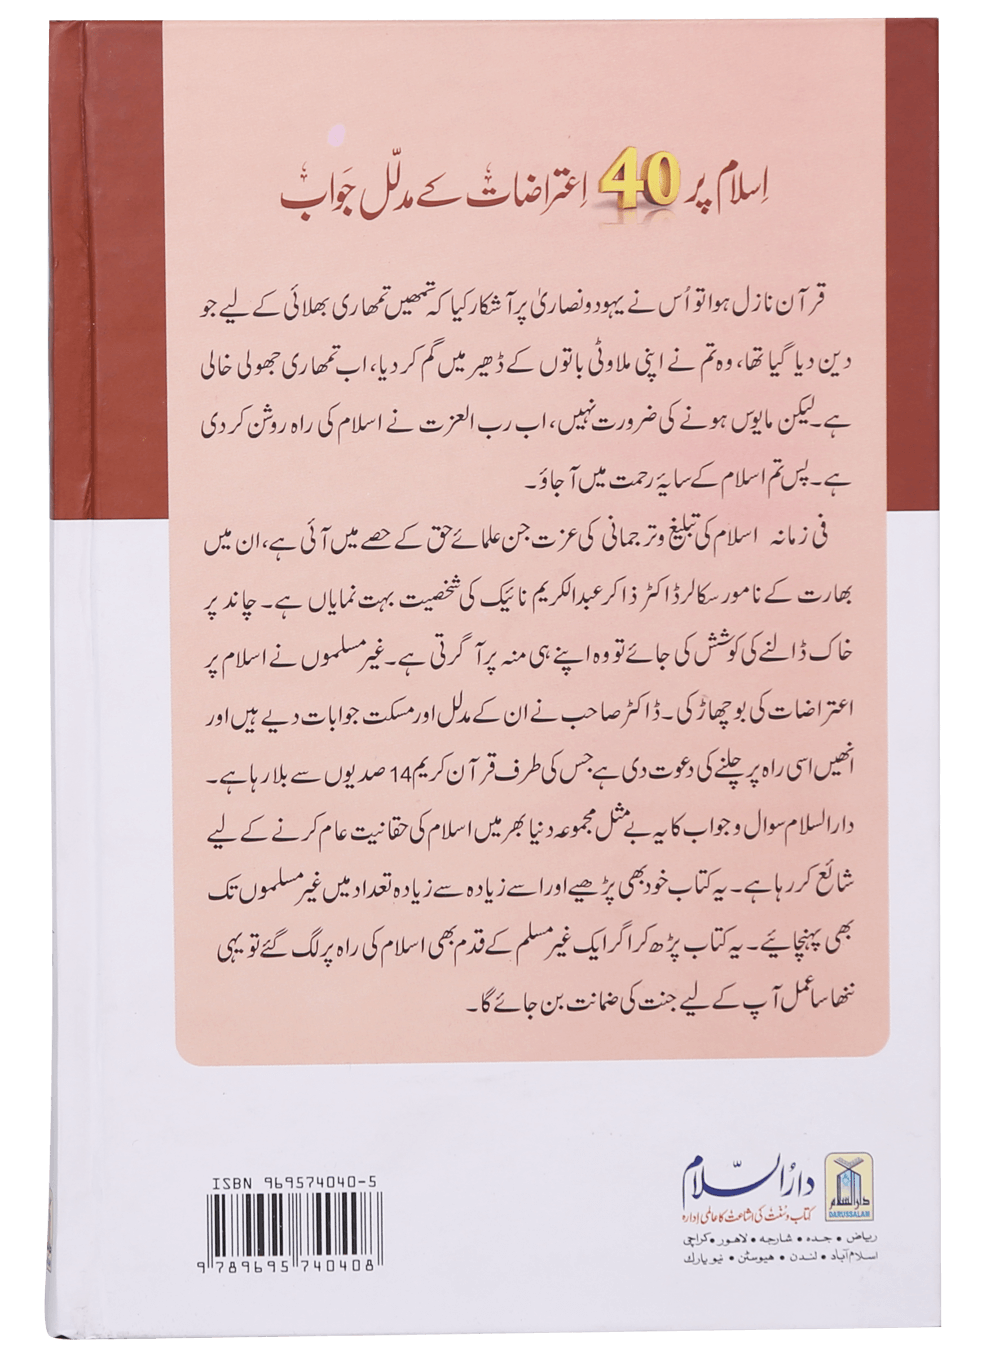 اِسلام پر 40 اِعتراضات کے مدلّل جَواب
قرآن نازل ہوا تو اُس نے یہود و نصاریٰ پر آشکار کیا کہ تمھیں تمھاری بھلائی کے لیے جو
دین دیا گیا تھا، وہ تم نے اپنی ملاوٹی باتوں کے ڈھیر میں گم کر دیا، اب تمھاری جھولی خالی
ہے۔ لیکن مایوس ہونے کی ضرورت نہیں، اب رب العزت نے اسلام کی راہ روشن کر دی
ہے۔ پس تم اسلام کے سایۂ رحمت میں آ جاؤ۔
فی زمانہ اسلام کی تبلیغ و ترجمانی کی عزت جن علمائے حق کے حصے میں آئی ہے، ان میں
بھارت کے نامور سکالر ڈاکٹر ذاکر عبدالکریم نائیک کی شخصیت بہت نمایاں ہے۔ چاند پر
خاک ڈالنے کی کوشش کی جائے تو وہ اپنے ہی منہ پر آ گرتی ہے۔ غیر مسلموں نے اسلام پر
اعتراضات کی بوچھاڑ کی۔ ڈاکٹر صاحب نے ان کے مدلل اور مسکت جوابات دیے ہیں اور
انھیں اسی راہ پر چلنے کی دعوت دی ہے جس کی طرف قرآن کریم 14 صدیوں سے بلا رہا ہے۔
دارالسلام سوال و جواب کا یہ بے مثل مجموعہ دنیا بھر میں اسلام کی حقانیت عام کرنے کے لیے
شائع کر رہا ہے۔ یہ کتاب خود بھی پڑھیے اور اسے زیادہ سے زیادہ تعداد میں غیر مسلموں تک
بھی پہنچائیے۔ یہ کتاب پڑھ کر اگر ایک غیر مسلم کے قدم بھی اسلام کی راہ پر لگ گئے تو یہی
ننھا سا عمل آپ کے لیے جنت کی ضمانت بن جائے گا۔
دارالسلام
کتاب و سُنت کی اشاعت کا عالمی اِدارہ
ریاض • جدہ • شارجہ • لاہور • کراچی
اسلام آباد • لندن • ہیوسٹن • نیو یارک
دارالسلام
DARUSSALAM
ISBN 969574040-5
9 789695 740408